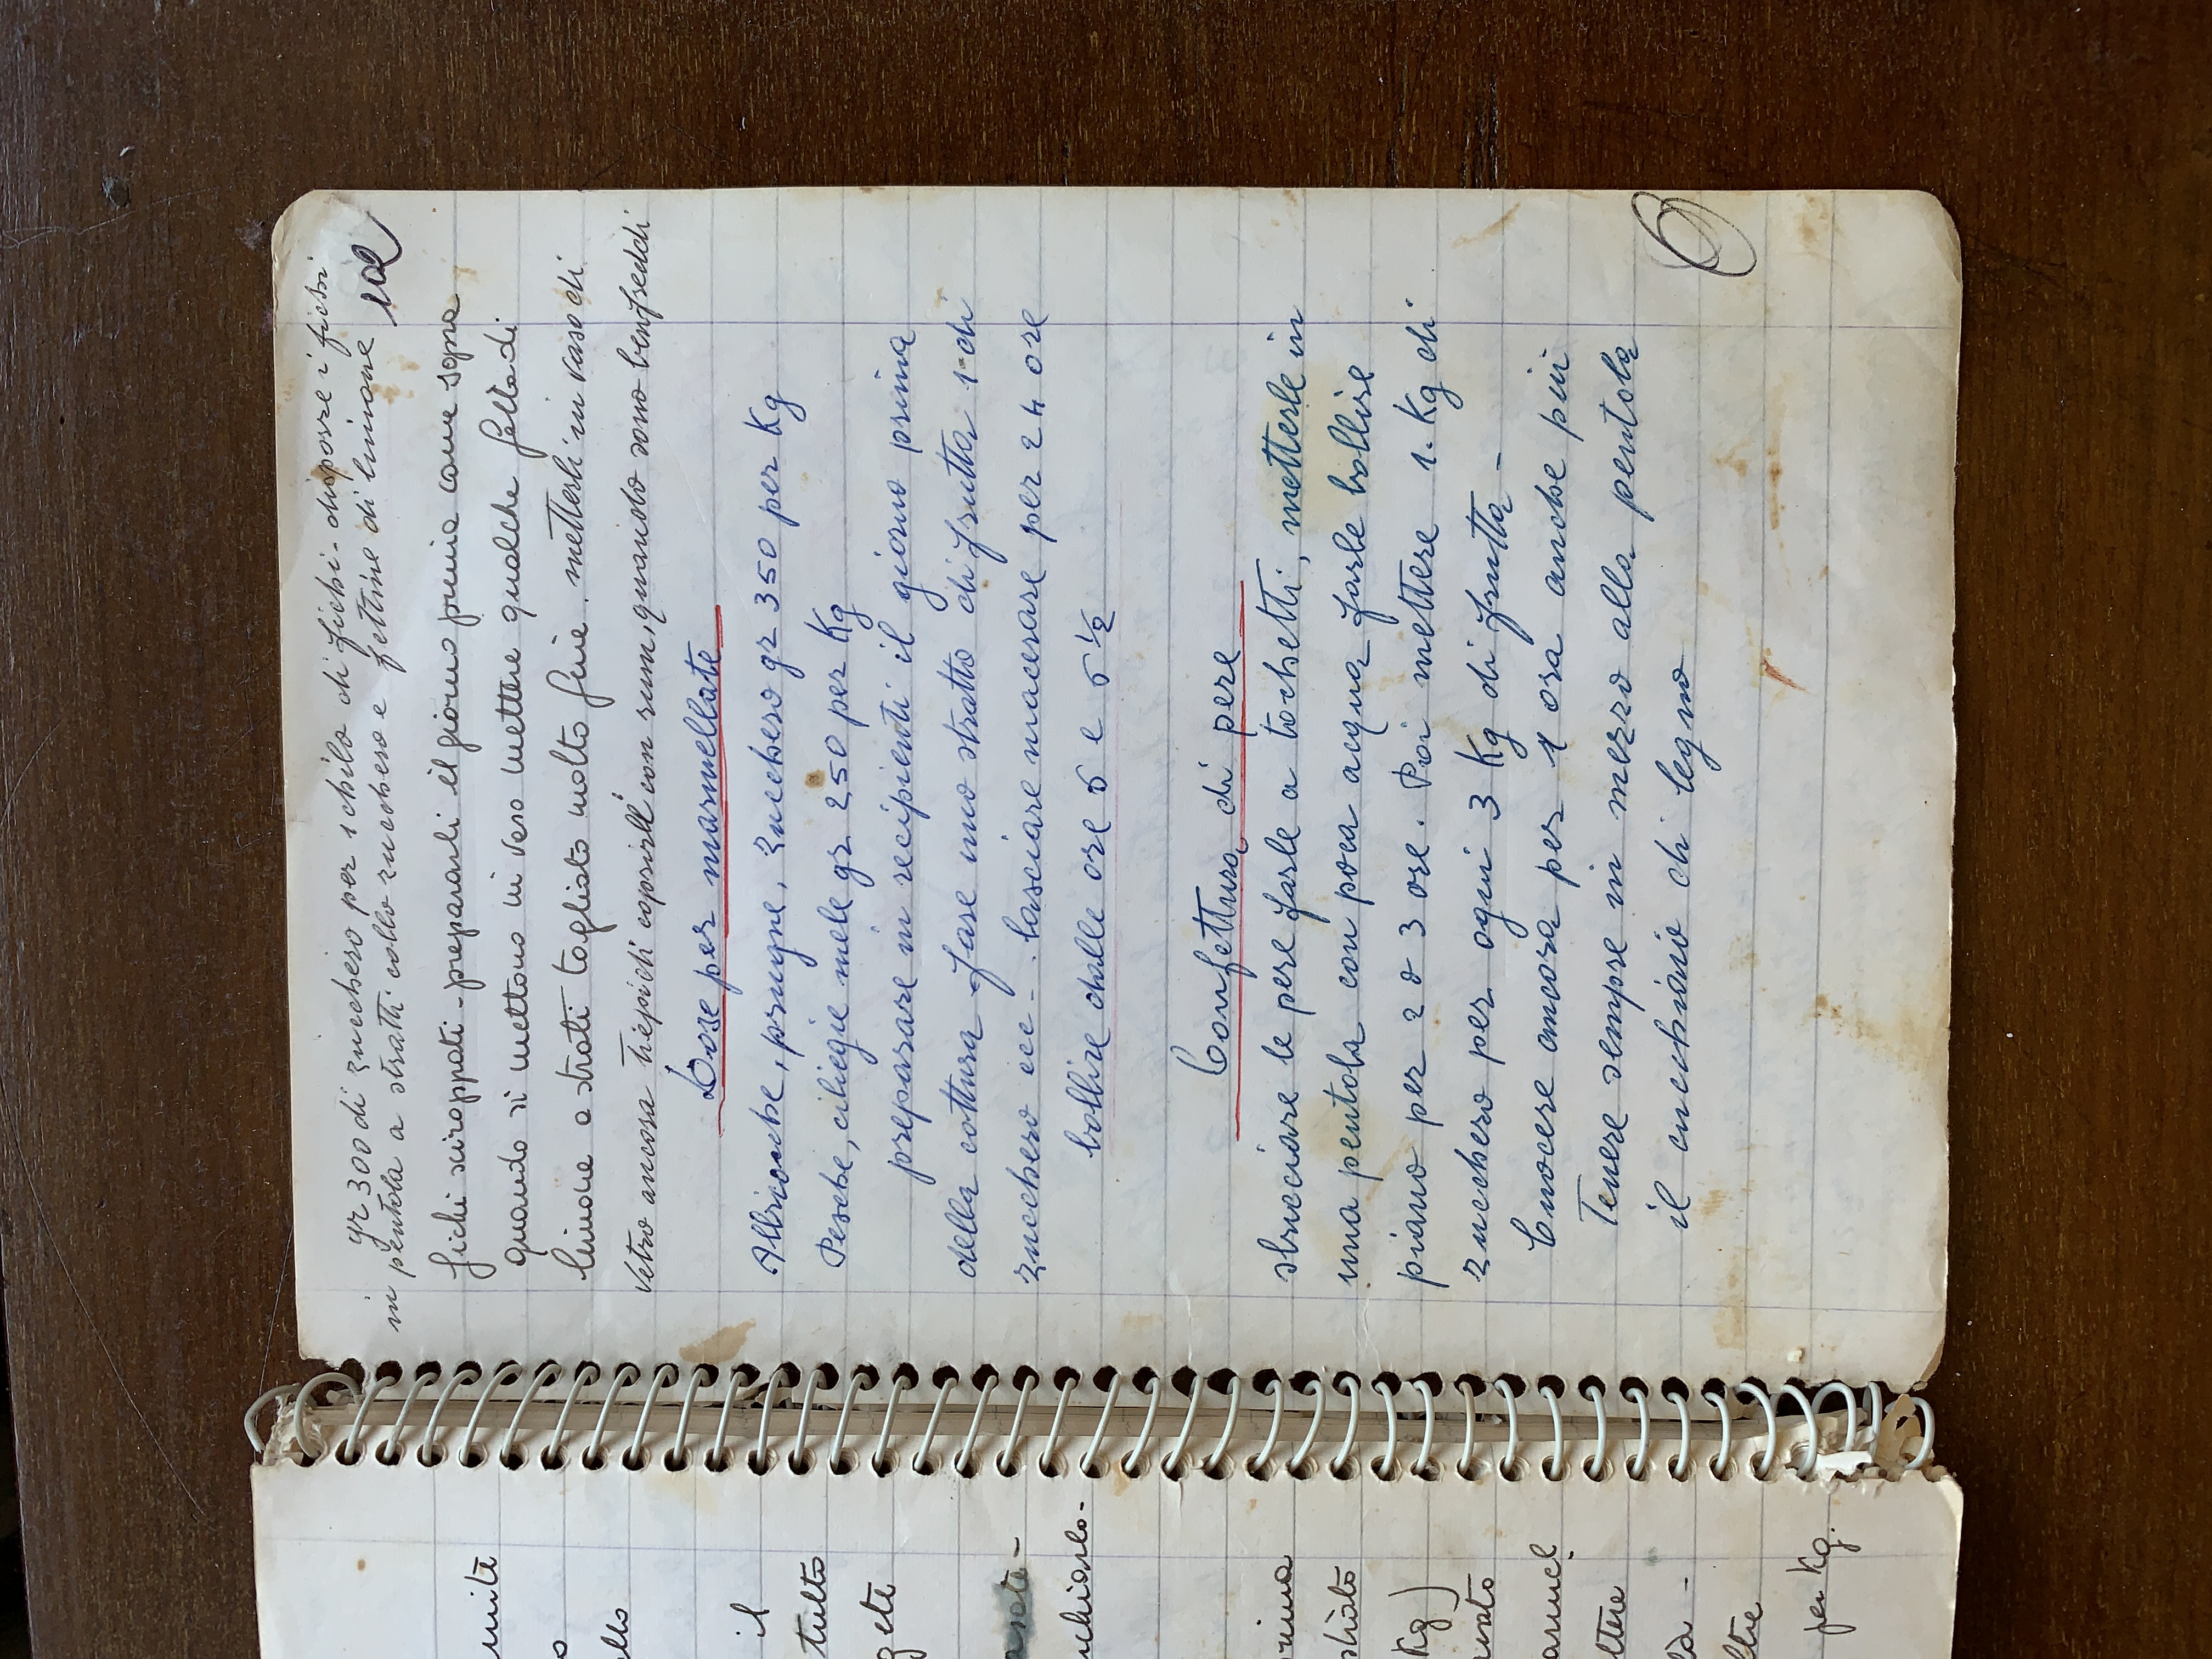 unite
o
allo
il
tutto
gete
asate-
cchiarlo-
prima
strato
Kg)
ltere
là -
ltre
per Kg.
gr 300 di zucchero per 1 chilo di fichi - disporre i fichi
in pentola a stratti collo zucchero e fettine di limone
102
fichi sciroppati - prepararli il giorno prima come sopra
quando si mettono in vaso mettere qualche fetta di
limone a strati tagliato molto fine. metterli in vaso di
vetro ancora tiepidi coprirli con rum, quando sono ben freddi
Dose per marmellate
Albicocche, prugne, zucchero gr 350 per Kg
Pesche, ciliegie mele gr 250 per Kg
preparare in recipienti il giorno prima
della cottura fare uno stratto di frutta 1 di
zucchero ecc - . lasciare macerare per 24 ore
bollire dalle ore 6 e 6 ½
Confettura di pere
sbucciare le pere farle a tochetti, metterle in
una pentola con poca acqua farle bollire
piano per 2 o 3 ore. Poi mettere 1. Kg di
zucchero per ogni 3 Kg di frutta -
Cuocere ancora per 1 ora anche più
Tenere sempre in mezzo alla pentola
il cucchiaio di legno